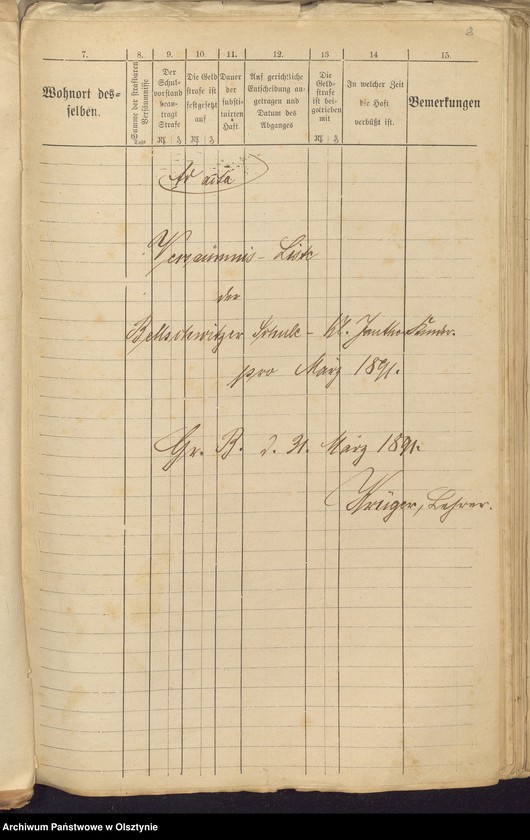 2
7. 8. 9. 10. 11. 12. 13 14 15.
Wohnort des-
selben.
Summe der strafbaren
Versäumnisse
Tage
Der
Schul-
vorstand
bean-
tragt
Strafe
M ₰
Die Geld
strafe ist
festgesetzt
auf
M ₰
Dauer
der
substi-
tuirten
Haft
Auf gerichtliche
Entscheidung an-
getragen und
Datum des
Abganges
Die
Geld-
strafe
ist bei-
getrieben
mit
M ₰
In welcher Zeit
die Haft
verbüßt ist.
Bemerkungen
Ad acta
Versäumnis-Liste
der
Bellschwitzer Schule - Kl. Jauther Kinder.
pro März 1891.
Gr. B. d. 31. März 1891.
Krüger, Lehrer.
Archiwum Państwowe w Olsztynie